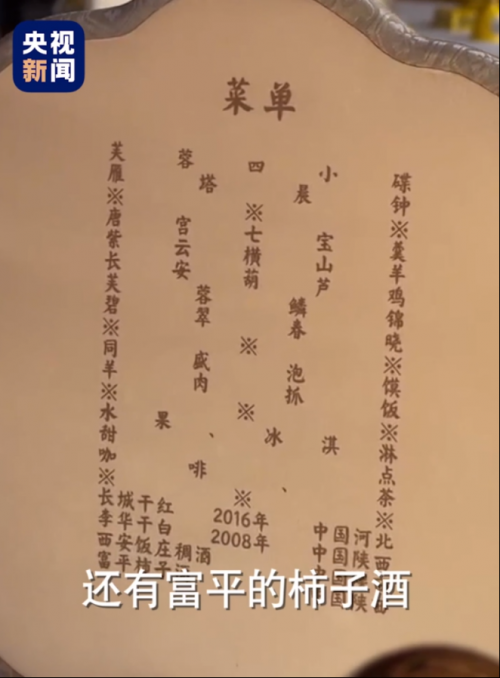 央视
新闻
菜单
芙蓉四小碟
雁塔晨钟
※ ※ ※
唐宫七宝羹
紫云横山羊
长安葫芦鸡
芙蓉鳞锦
碧翠春晓
※ ※ ※
同盛泡馍
羊肉抓饭
※ ※ ※
水果、冰淇淋
甜点
咖啡、茶
※ ※ ※
长城干红 2016年 中国河北
李华干白 2008年 中国陕西
西安饭庄稠酒 中
富平
还有富平的柿子酒